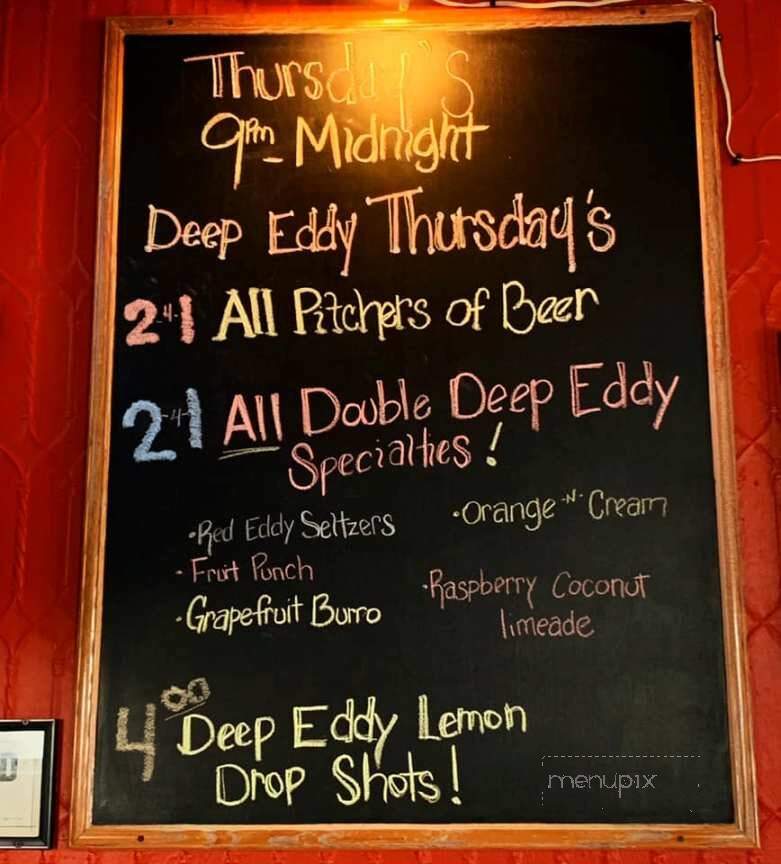 Thursday's
9pm - Midnight
Deep Eddy Thursday's
2-4-1 All Pitchers of Beer
2-4-1 All Double Deep Eddy
Specialties!
·Red Eddy Seltzers
·Orange -N- Cream
·Fruit Punch
·Raspberry Coconut
limeade
·Grapefruit Burro
4.00 Deep Eddy Lemon
Drop Shots!
menupix